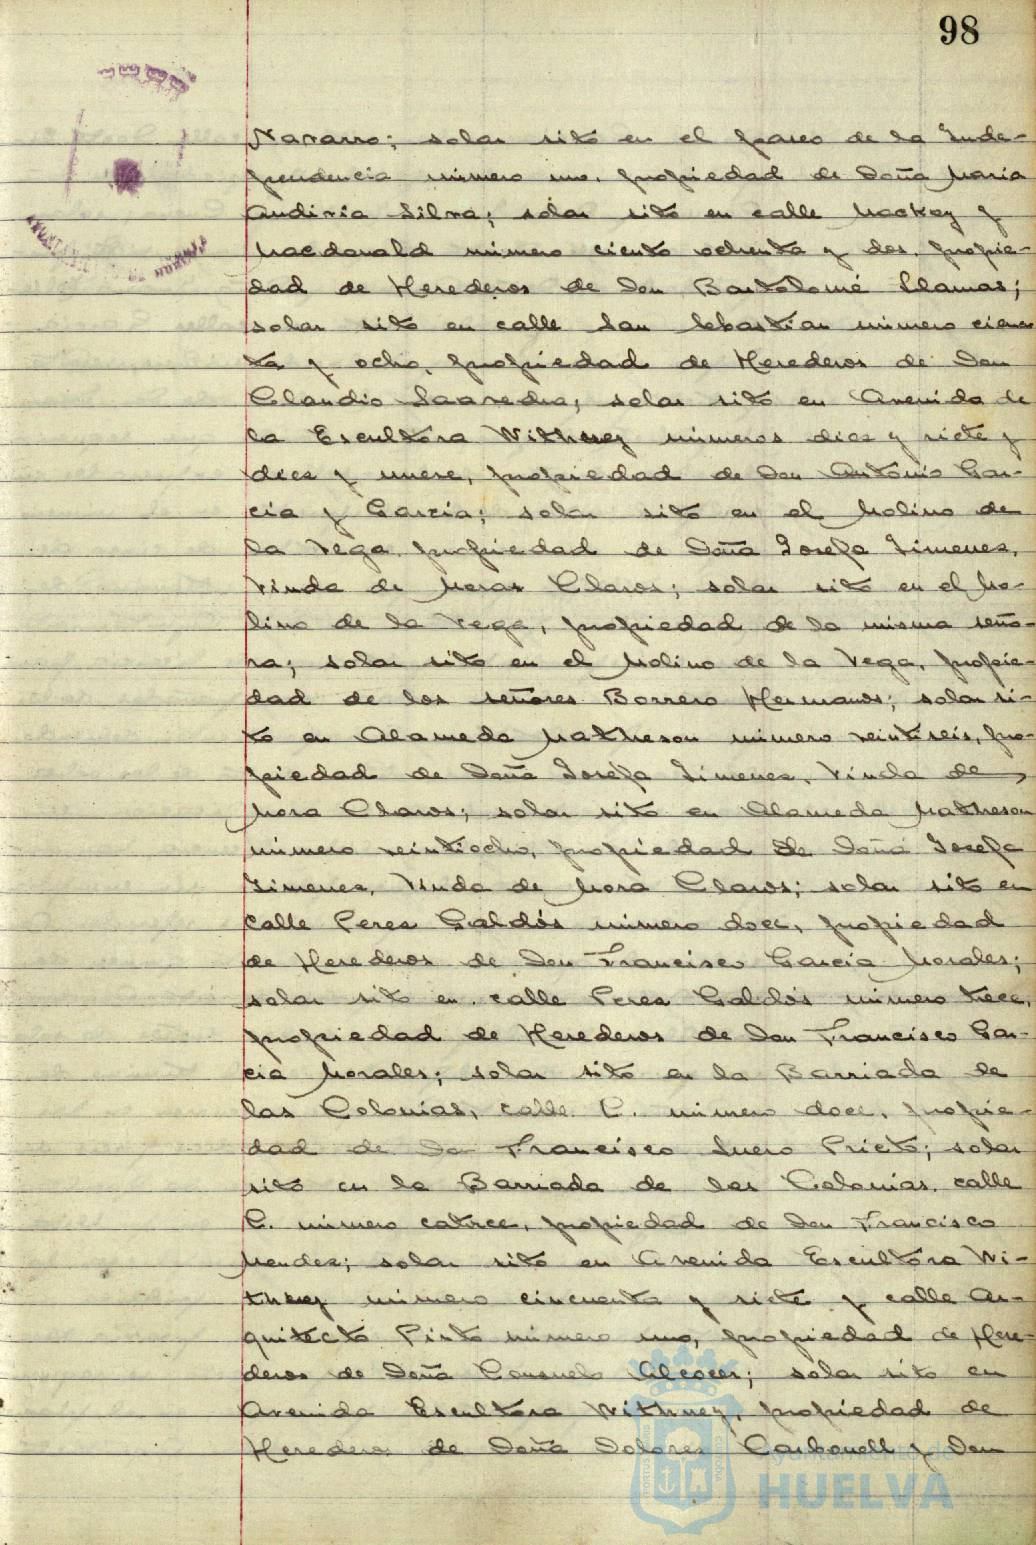 98
Navarro; solar sito en el paseo de la Inde-
pendencia número uno, propiedad de Doña María
Andivia Silva; solar sito en calle Mackay y
Macdonald número ciento ochenta y dos, propie-
dad de Herederos de Don Bartolomé Llamas;
solar sito en calle San Sebastian número cien
to y ocho, propiedad de Herederos de Don
Claudio Saavedra; solar sito en Avenida de
la Escultora Withney números diez y siete y
diez y nueve, propiedad de Don Antonio Gar-
cia y García; solar sito en el Molino de
la Vega propiedad de Doña Josefa Jimenez,
Viuda de Moras Claros; solar sito en el Mo-
lino de la Vega, propiedad de la misma seño-
ra; solar sito en el Molino de la Vega, propie-
dad de los señores Borrero Hermanos; solar si-
to en Alameda Matheson número veintiseis, pro-
piedad de Doña Josefa Jimenez, Viuda de
Mora Claros; solar sito en Alameda Matheson
número veintiocho, propiedad de Doña Josefa
Jimenez, Viuda de Mora Claros; solar sito en
calle Perez Galdós número doce, propiedad
de Herederos de Don Francisco García Morales;
solar sito en calle Perez Galdós número trece,
propiedad de Herederos de Don Francisco Gar-
cia Morales; solar sito en la Barriada de
las Colonias, calle C. número doce, propie-
dad de Don Francisco Suero Prieto; solar
sito en la Barriada de las Colonias, calle
C. número catorce, propiedad de Don Francisco
Mendez; solar sito en Avenida Escultora Wi-
thney número cincuenta y siete y calle Ar-
quitecto Pinto número uno, propiedad de Here-
deros de Doña Consuelo Alcocer; solar sito en
Avenida Escultora Withney, propiedad de
Herederos de Doña Dolores Carbonell y Don
Ayuntamiento de
HUELVA